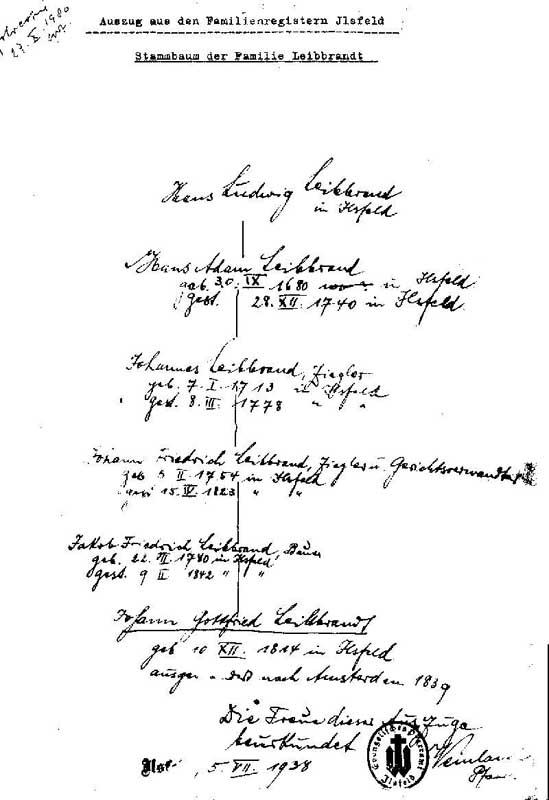 27. X 1980
Auszug aus den Familienregistern Jlsfeld
Stammbaum der Familie Leibbrandt
Hans Ludwig Leibbrand
in Ilsfeld
Hans Adam Leibbrand
geb. 30. IX 1680 in Ilsfeld
gest. 28. XII. 1740 in Ilsfeld
Johannes Leibbrand, Ziegler
geb. 7. I. 1713 in Ilsfeld
gest. 8. III. 1778 " "
Johann Friedrich Leibbrand, Ziegler u. Gerichtsverwandter
geb 5 II. 1754 in Ilsfeld
gest 15. IV. 1823 " "
Jakob Friedrich Leibbrand, Bauer
geb. 22. 1780 in Ilsfeld
gest. 9 II 1842 " "
Johann Gottfried Leibbrand
geb 10 XII. 1814 in Ilsfeld
nach Amsterdam 1839
Die Treue dieser Auszuge
beurkundet
Ilsf. 5. VII. 1938
Evangelisches Pfarramt
Ilsfeld